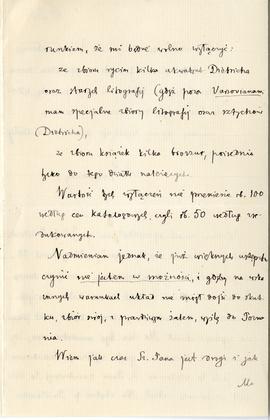 runkiem, że mi będzie wolno wyłączyć:
ze zbioru rycin kilka akwafort Dietricha
oraz starych litografij (gdyż poza Varsovianami
mam specjalne zbiory litografij oraz sztychów
Dietricha),
ze zbioru książek kilka broszur, pośrednio
tylko do tego działu należących.
Wartość tych wyłączeń nie przeniesie rb. 100
według cen katalogowych, czyli rb. 50 według zre-
dukowanych.
Nadmieniam jednak, że już większych ustępstw
czynić nie jestem w możności, i gdyby na wska-
zanych warunkach układ nie mógł dojść do skut-
ku, zbiór mój, z prawdziwym żalem, wyślę do Pozna-
nia.
Wiem jak czas Sz. Pana jest drogi i jak